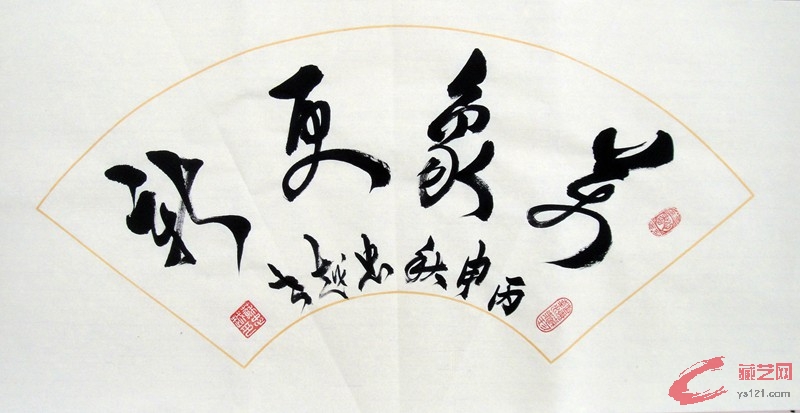 萬象更新
丙申秋忠越书
藏艺网
ys121.com